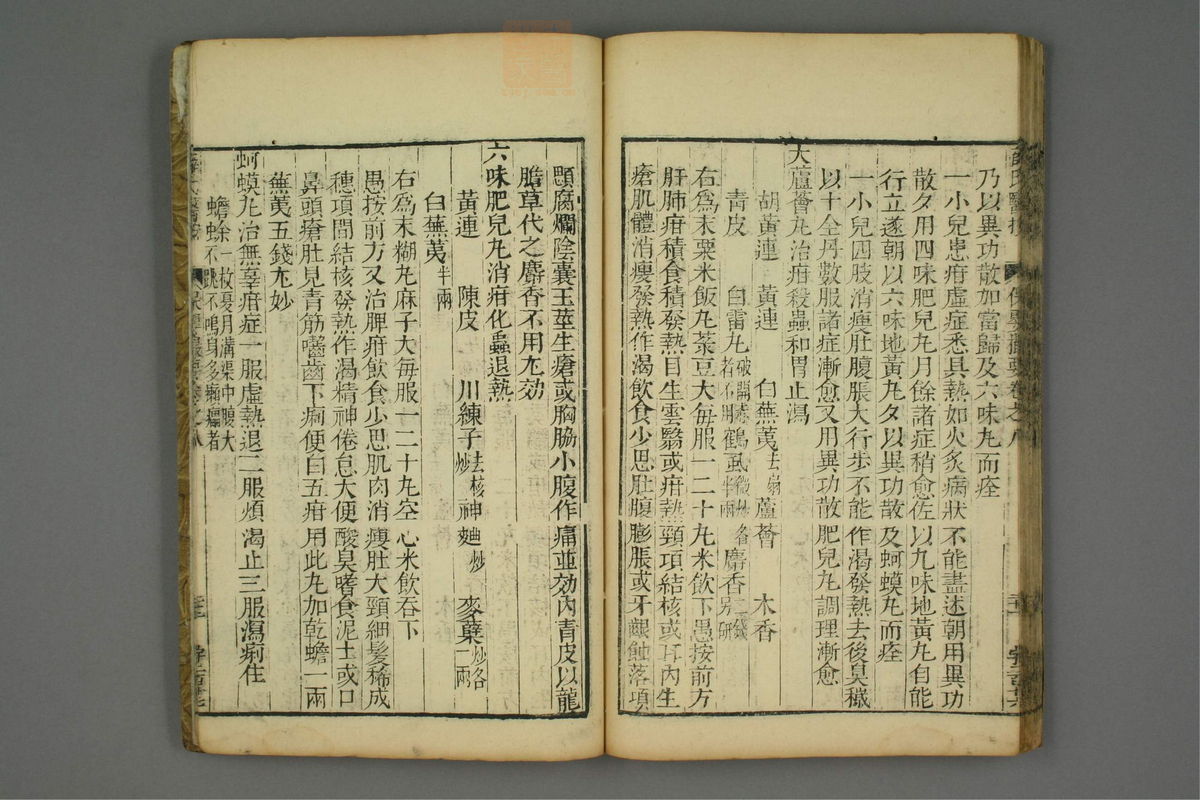 乃以異功散加當歸及六味丸而痊
一小兒患疳虛症悉具熱如火炙病狀不能盡述朝用異功
散夕用四味肥兒丸月餘諸症稍愈佐以九味地黃丸自能
行立遂朝以六味地黃丸夕以異功散及蚵蟆丸而痊
一小兒四肢消瘦肚腹脹大行步不能作渴發熱去後臭穢
以十全丹數服諸症漸愈又用異功散肥兒丸調理漸愈
大蘆薈丸治疳殺蟲和胃止瀉
胡黃連 黃連 白蕪荑去扇 蘆薈 木香
青皮 白雷丸破開赤者不用 鶴虱微炒各半兩 麝香二錢另研
右為末粟米飯丸菉豆大每服一二十丸米飲下愚按前方
肝肺疳積食積發熱目生雲翳或疳熱頸項結核或耳內生
瘡肌體消瘦發熱作渴飲食少思肚腹膨脹或牙齦蝕落項
顋腐爛陰囊玉莖生瘡或胸脇小腹作痛並効內青皮以龍
膽草代之麝香不用尢効
六味肥兒丸消疳化蟲退熱
黃連 陳皮 川練子去核炒 神麯炒 麥蘗炒各一兩
白蕪荑半兩
右為末糊丸麻子大每服一二十丸空心米飲吞下
愚按前方又治脾疳飲食少思肌肉消瘦肚大頸細髮稀成
穗項間結核發熱作渴精神倦怠大便酸臭嗜食泥土或口
鼻頭瘡肚見青筋嚙齒下痢便白五疳用此丸加乾蟾一兩
蕪荑五錢尢妙
蚵蟆丸治無辜疳症一服虛熱退二服煩渴止三服瀉痢住
蟾蜍一枚夏月溝渠中腹大不跳不鳴身多癩癗者